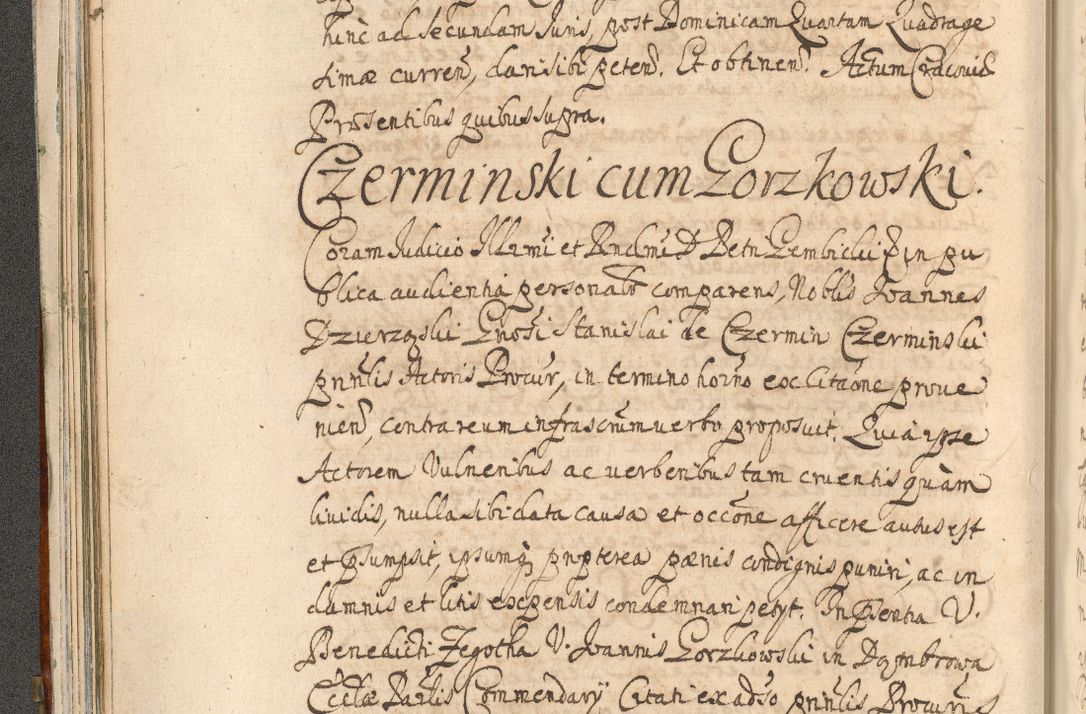 hinc ad secundam Juris, post Dominicam Quartam Quadrage
simæ curren, dari sibi peten. Et obtinen. Actum Cracoviæ
Præsentibus quibus supra.
Czerminski cum Gorzkowski.
Coram Judicio Illrmi et Rndmi D Petri Gembicki in pu
blica audientia personalr comparens, Noblis Joannes
Dzierzgski Gnosi Stanislai de Czermin Czerminski
prinlis Actoris Procur, in termino horno ex Citaone prove
nien, contra reum infrascrum verbo proposuit. Quia ipse
Actorem Vulneribus ac verberibus tam cruentis quàm
lividis, nulla sibi data causa et occone afficere ausus est
et psumpsit, ipsumq propterea pænis condignis puniri, ac in
damnis et litis expensis condemnari petyt. In psentia V.
Benedicti Zegotha V. Joannis Gorzkowski in Dąmbrowa
Ecclæ Parlis Commendary Citati ex adso prinlis Procuris